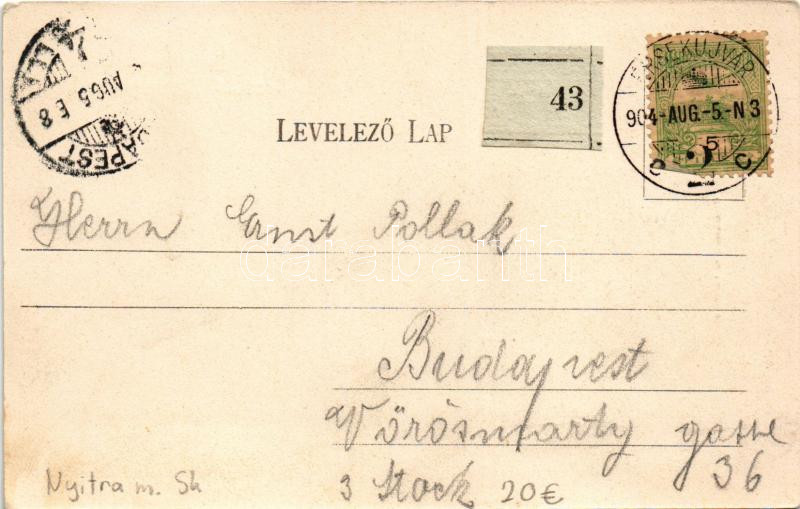 ÉRSEKUJVÁR
904-AUG.-5.-N3
AUG 5 E 8
BUDAPEST
43
LEVELEZŐ LAP
Herrn Ernst Pollak
darabanth
Budapest
Vörösmarty gasse
36
3 Stock 20€
Nyitra m. Sk